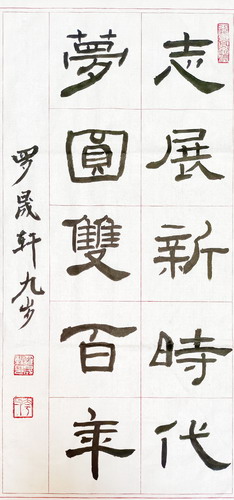 志展新時代
夢圓雙百年
罗晟轩九岁